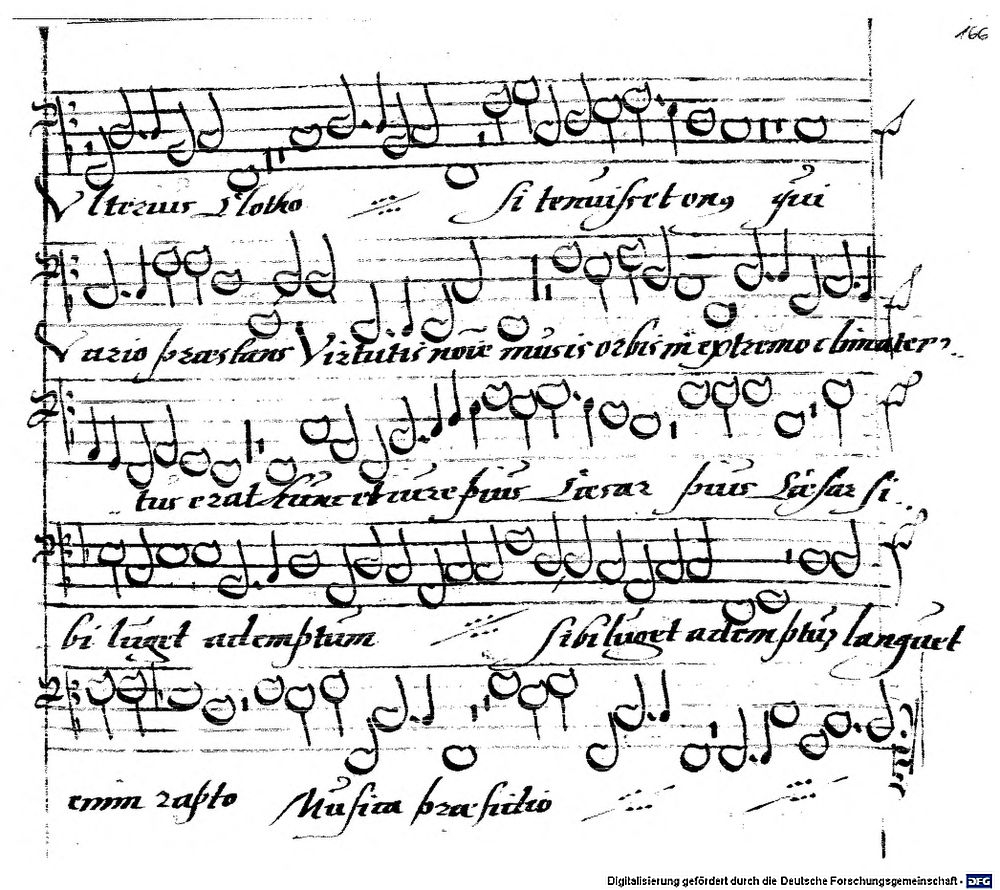 166
Vlterius Clotho si tenuisset onus qui
Vario præstans Virtutis nouē musis orbis in extremo climater
tus erat hunc et iure pius Cæsar pius Cæsar si
bi luget ademptum sibi luget ademptuz languet
enim rapto Musica præsidio
Digitalisierung gefördert durch die Deutsche Forschungsgemeinschaft - DFG